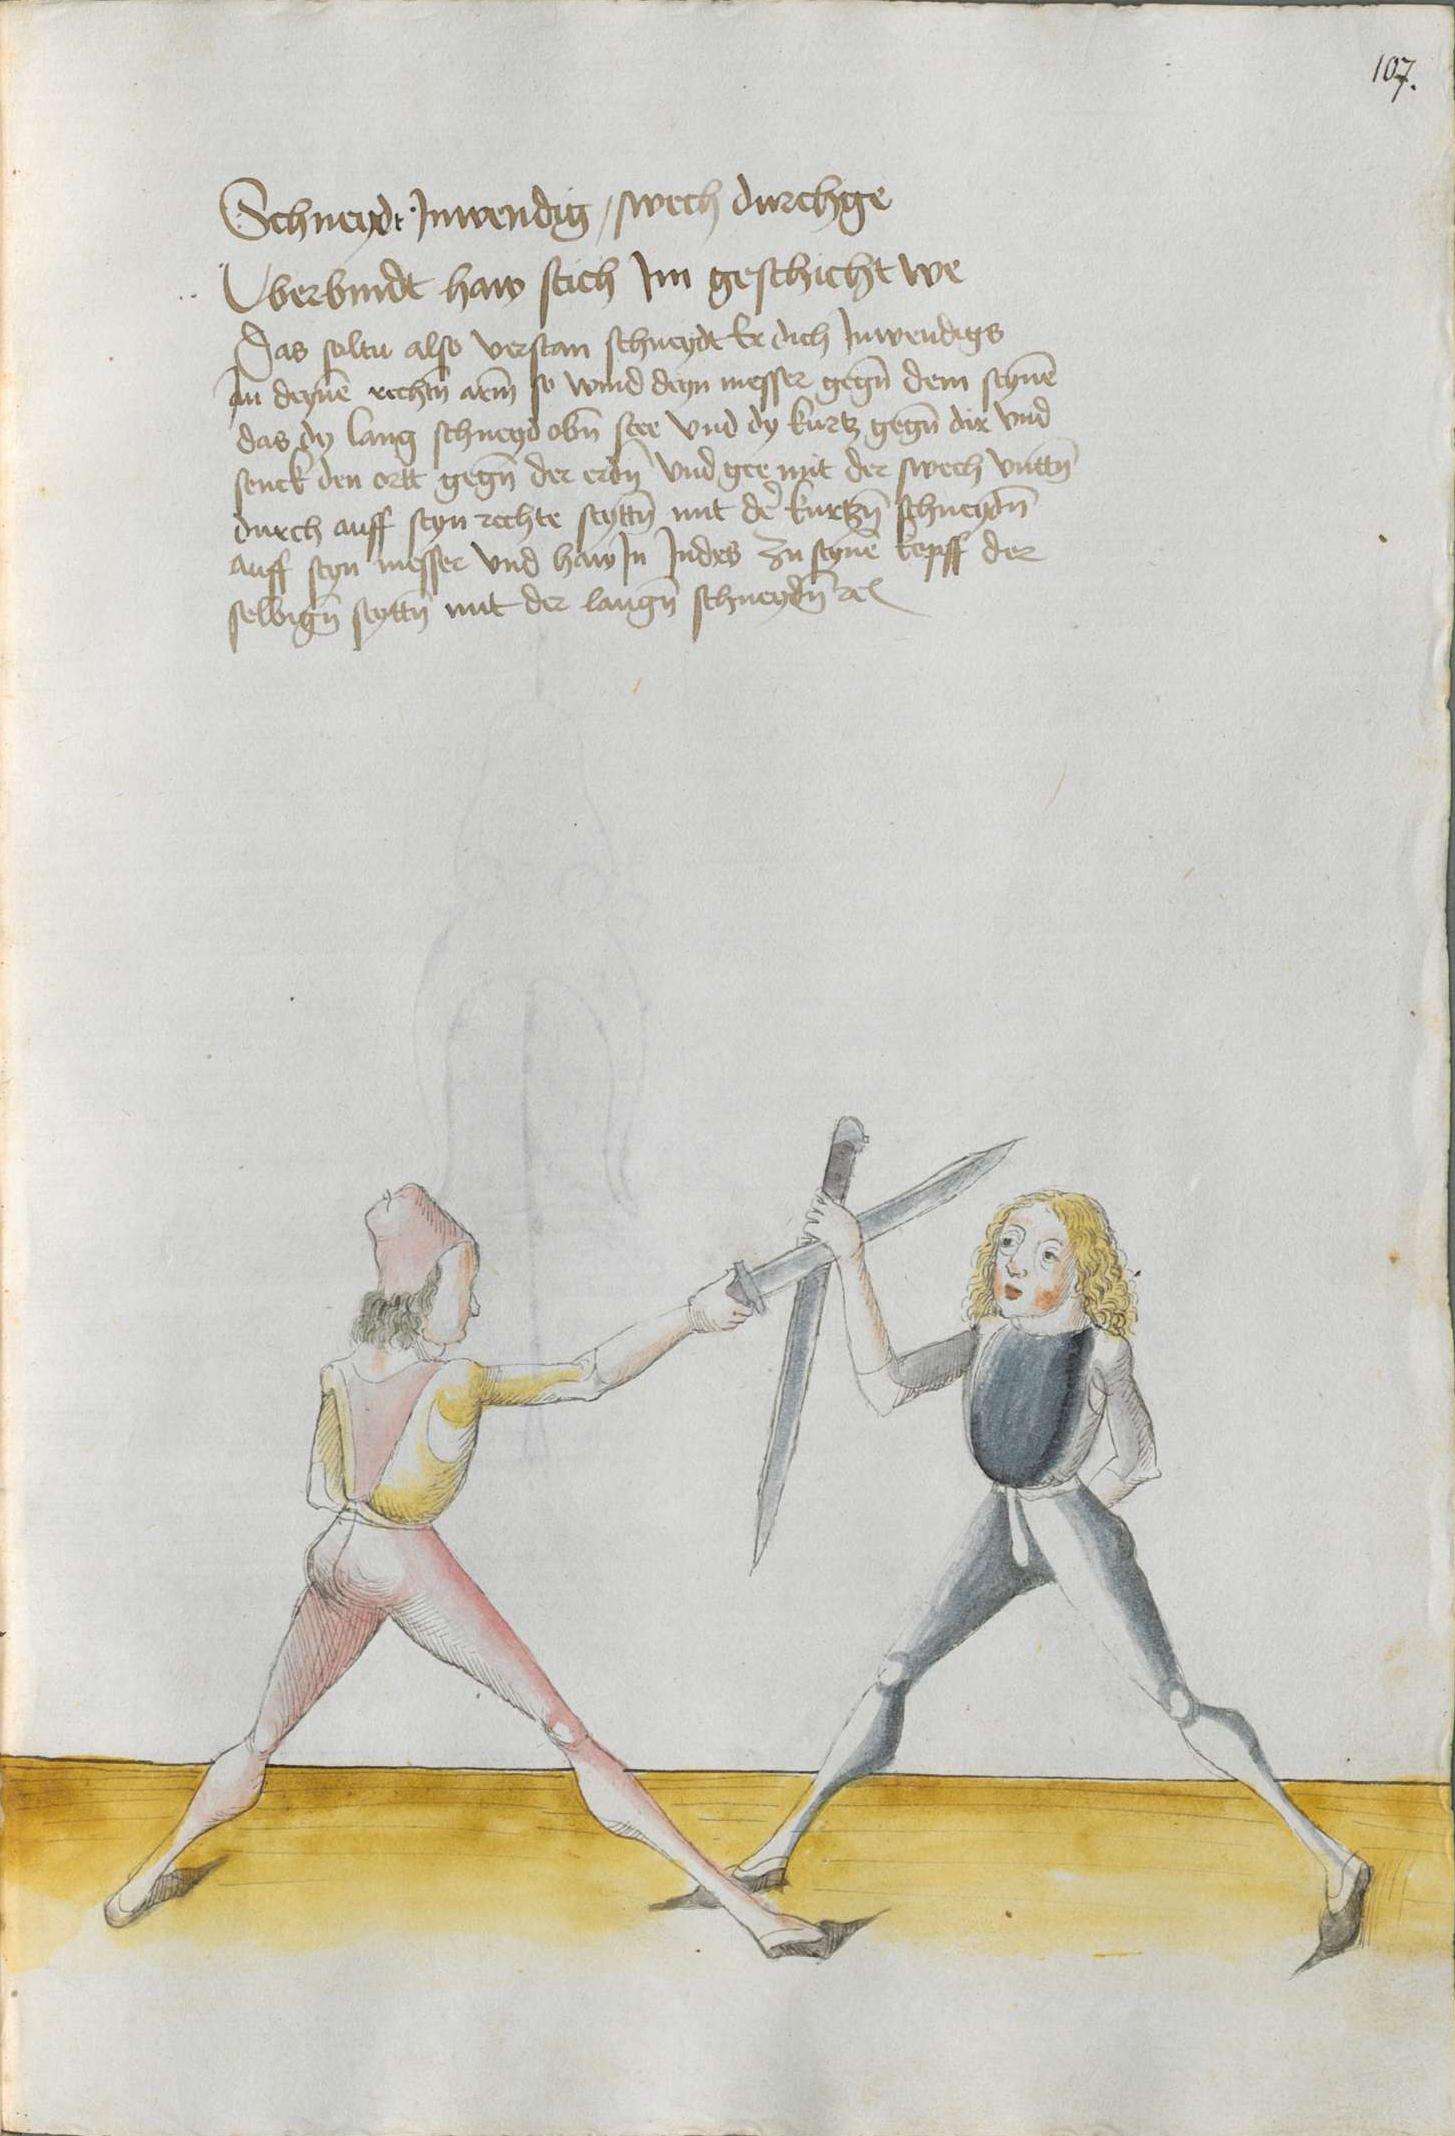 107.
Schneydt Inwendig / swech durchge
Vberbindt haw stich Im geschicht we
Das soltu also verstan schneydt Er dich Inwendigs
An deynē rechtn̄ arm̄ so wind deyn messer gegn̄ dem seynē
das dy lang schneyd obn̄ stee vnd dy kurtz gegn̄ dir vnd
senck den ortt gegn̄ der erdn̄ vnd gee mit der swech vnttn̄
durch auff seyn rechte seyttn̄ mit der kurtzn̄ schneydn̄
auff seyn messer vnd haw In Indes zu seynē kopff der
selbign̄ seyttn̄ mit der langn̄ schneydn̄ rc